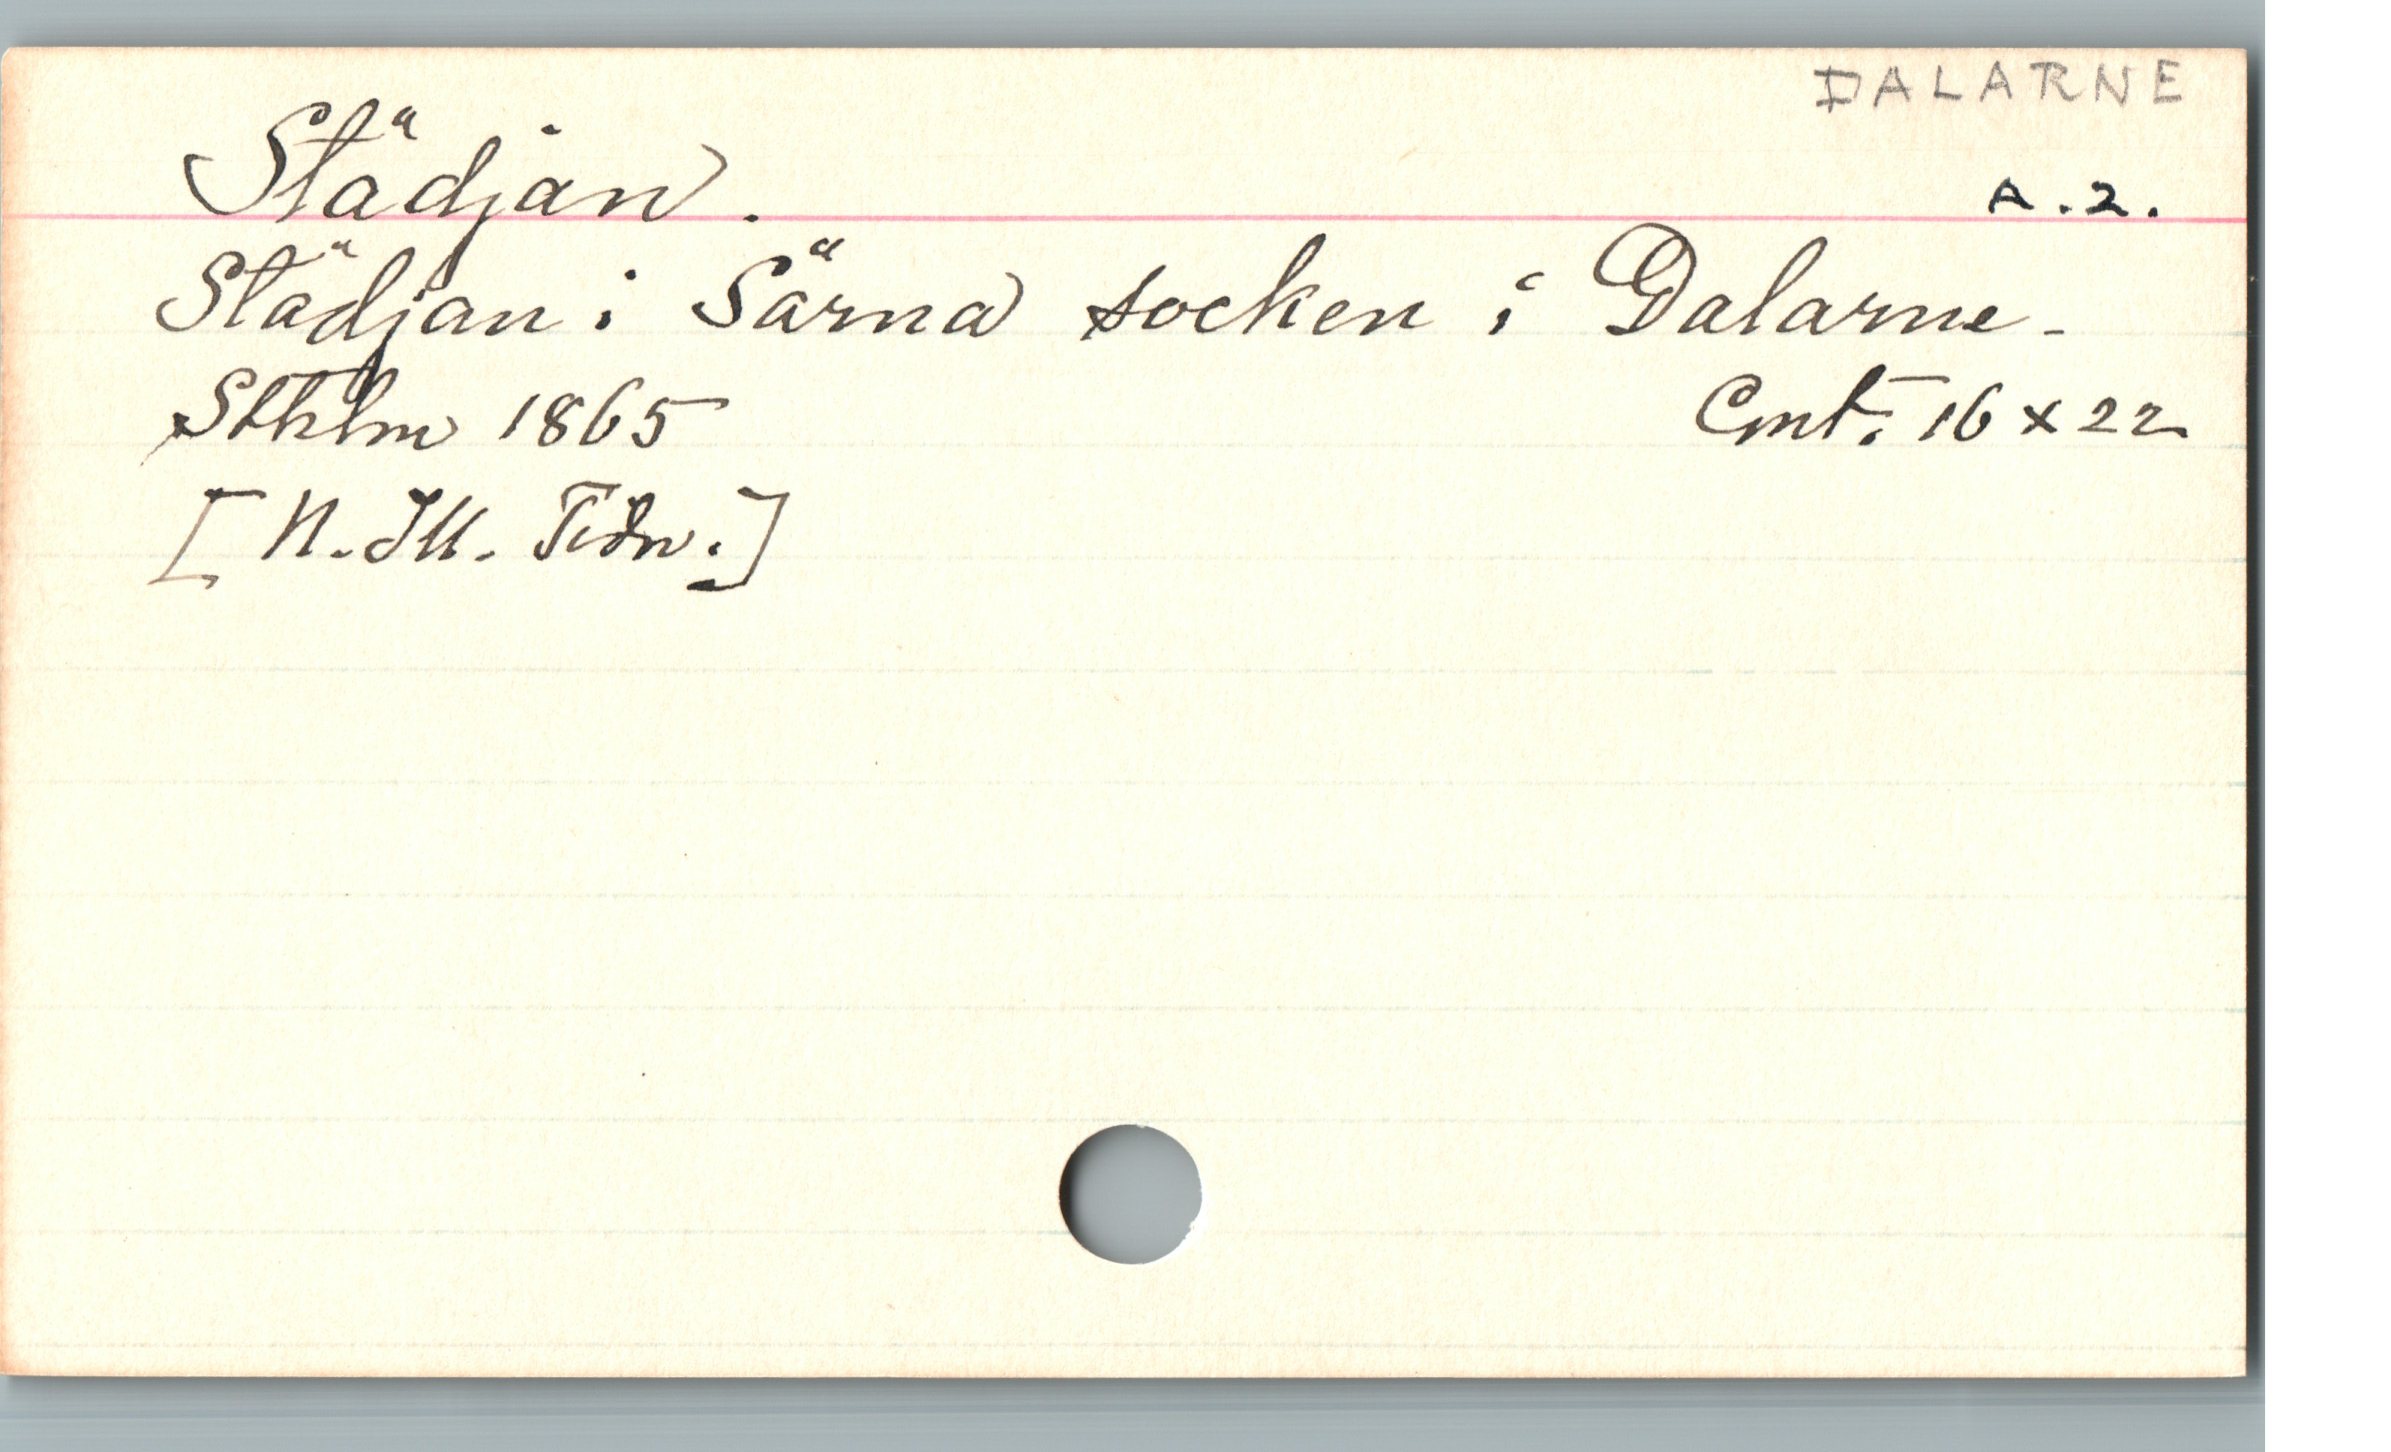 DALARNE
Städjan.
A.2.
Städjan i Särna socken i Dalarne.
Sthlm 1865 Cmt. 16 x 22
[N. Ill. Tidn.]